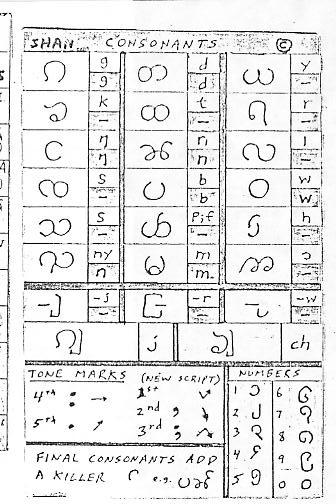 SHAN CONSONANTS ©
ၵ g g တ d d ယ y –
ၶ k – ထ t – ရ r –
င ŋ ŋ ၼ n n လ l –
s – ပ b b ဝ w w
သ s – ၽ p;f – ႁ h –
ၺ ny n မ m m ဢ ɔ –
-ျ -j ြ -r -w
ၵျ j ၶျ ch
TONE MARKS (NEW SCRIPT)
4th : → 1st
5th . ↗ 2nd ,
3rd ;
FINAL CONSONANTS ADD
A KILLER ် e.g. ပၼ်
NUMBERS
1 ၁ 6 ၆
2 ၂ 7 ၇
3 ၃ 8 ၈
4 ၄ 9 ၉
5 ၅ 0 ၀